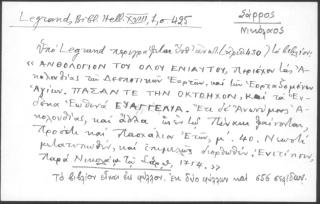 Legrand, Bibl. Hell. XVIII, 1, σ. 425
Σάρρος
Νικόλαος
Ὑπὸ Legrand περιγράφεται (ἀριθ. 430) τὸ βιβλίον:
« ΑΝΘΟΛΟΓΙΟΝ ΤΟΥ ΟΛΟΥ ΕΝΙΑΥΤΟΥ, Περιέχον τὰς Ἀ-
κολουθίας τῶν Δεσποτικῶν Ἑορτῶν, καὶ τῶν Ἑορταζομένων
Ἁγίων. ΠΑΣΑΝ ΤΕ ΤΗΝ ΟΚΤΩΗΧΟΝ, καὶ τὰ Ἕν-
δεκα Ἑωθινὰ ΕΥΑΓΓΕΛΙΑ. Ἔτι δὲ Ἀνωνύμους Ἀ-
κολουθίας, καὶ ἄλλα ἐν τῷ Πίνακι φαίνονται,
Πρὸς δὲ καὶ Πασχάλια Ἐτῶν, μ΄. 40. Νεωστὶ
μετατυπωθέν, καὶ ἐπιμελῶς διορθωθέν. Ἐνετίησιν,
Παρὰ Νικολάῳ τῷ Σάρῳ, 1754. »
Τὸ βιβλίον εἶναι εἰς φύλλον. ἐκ δύο φύλλων καὶ 656 σελίδων.